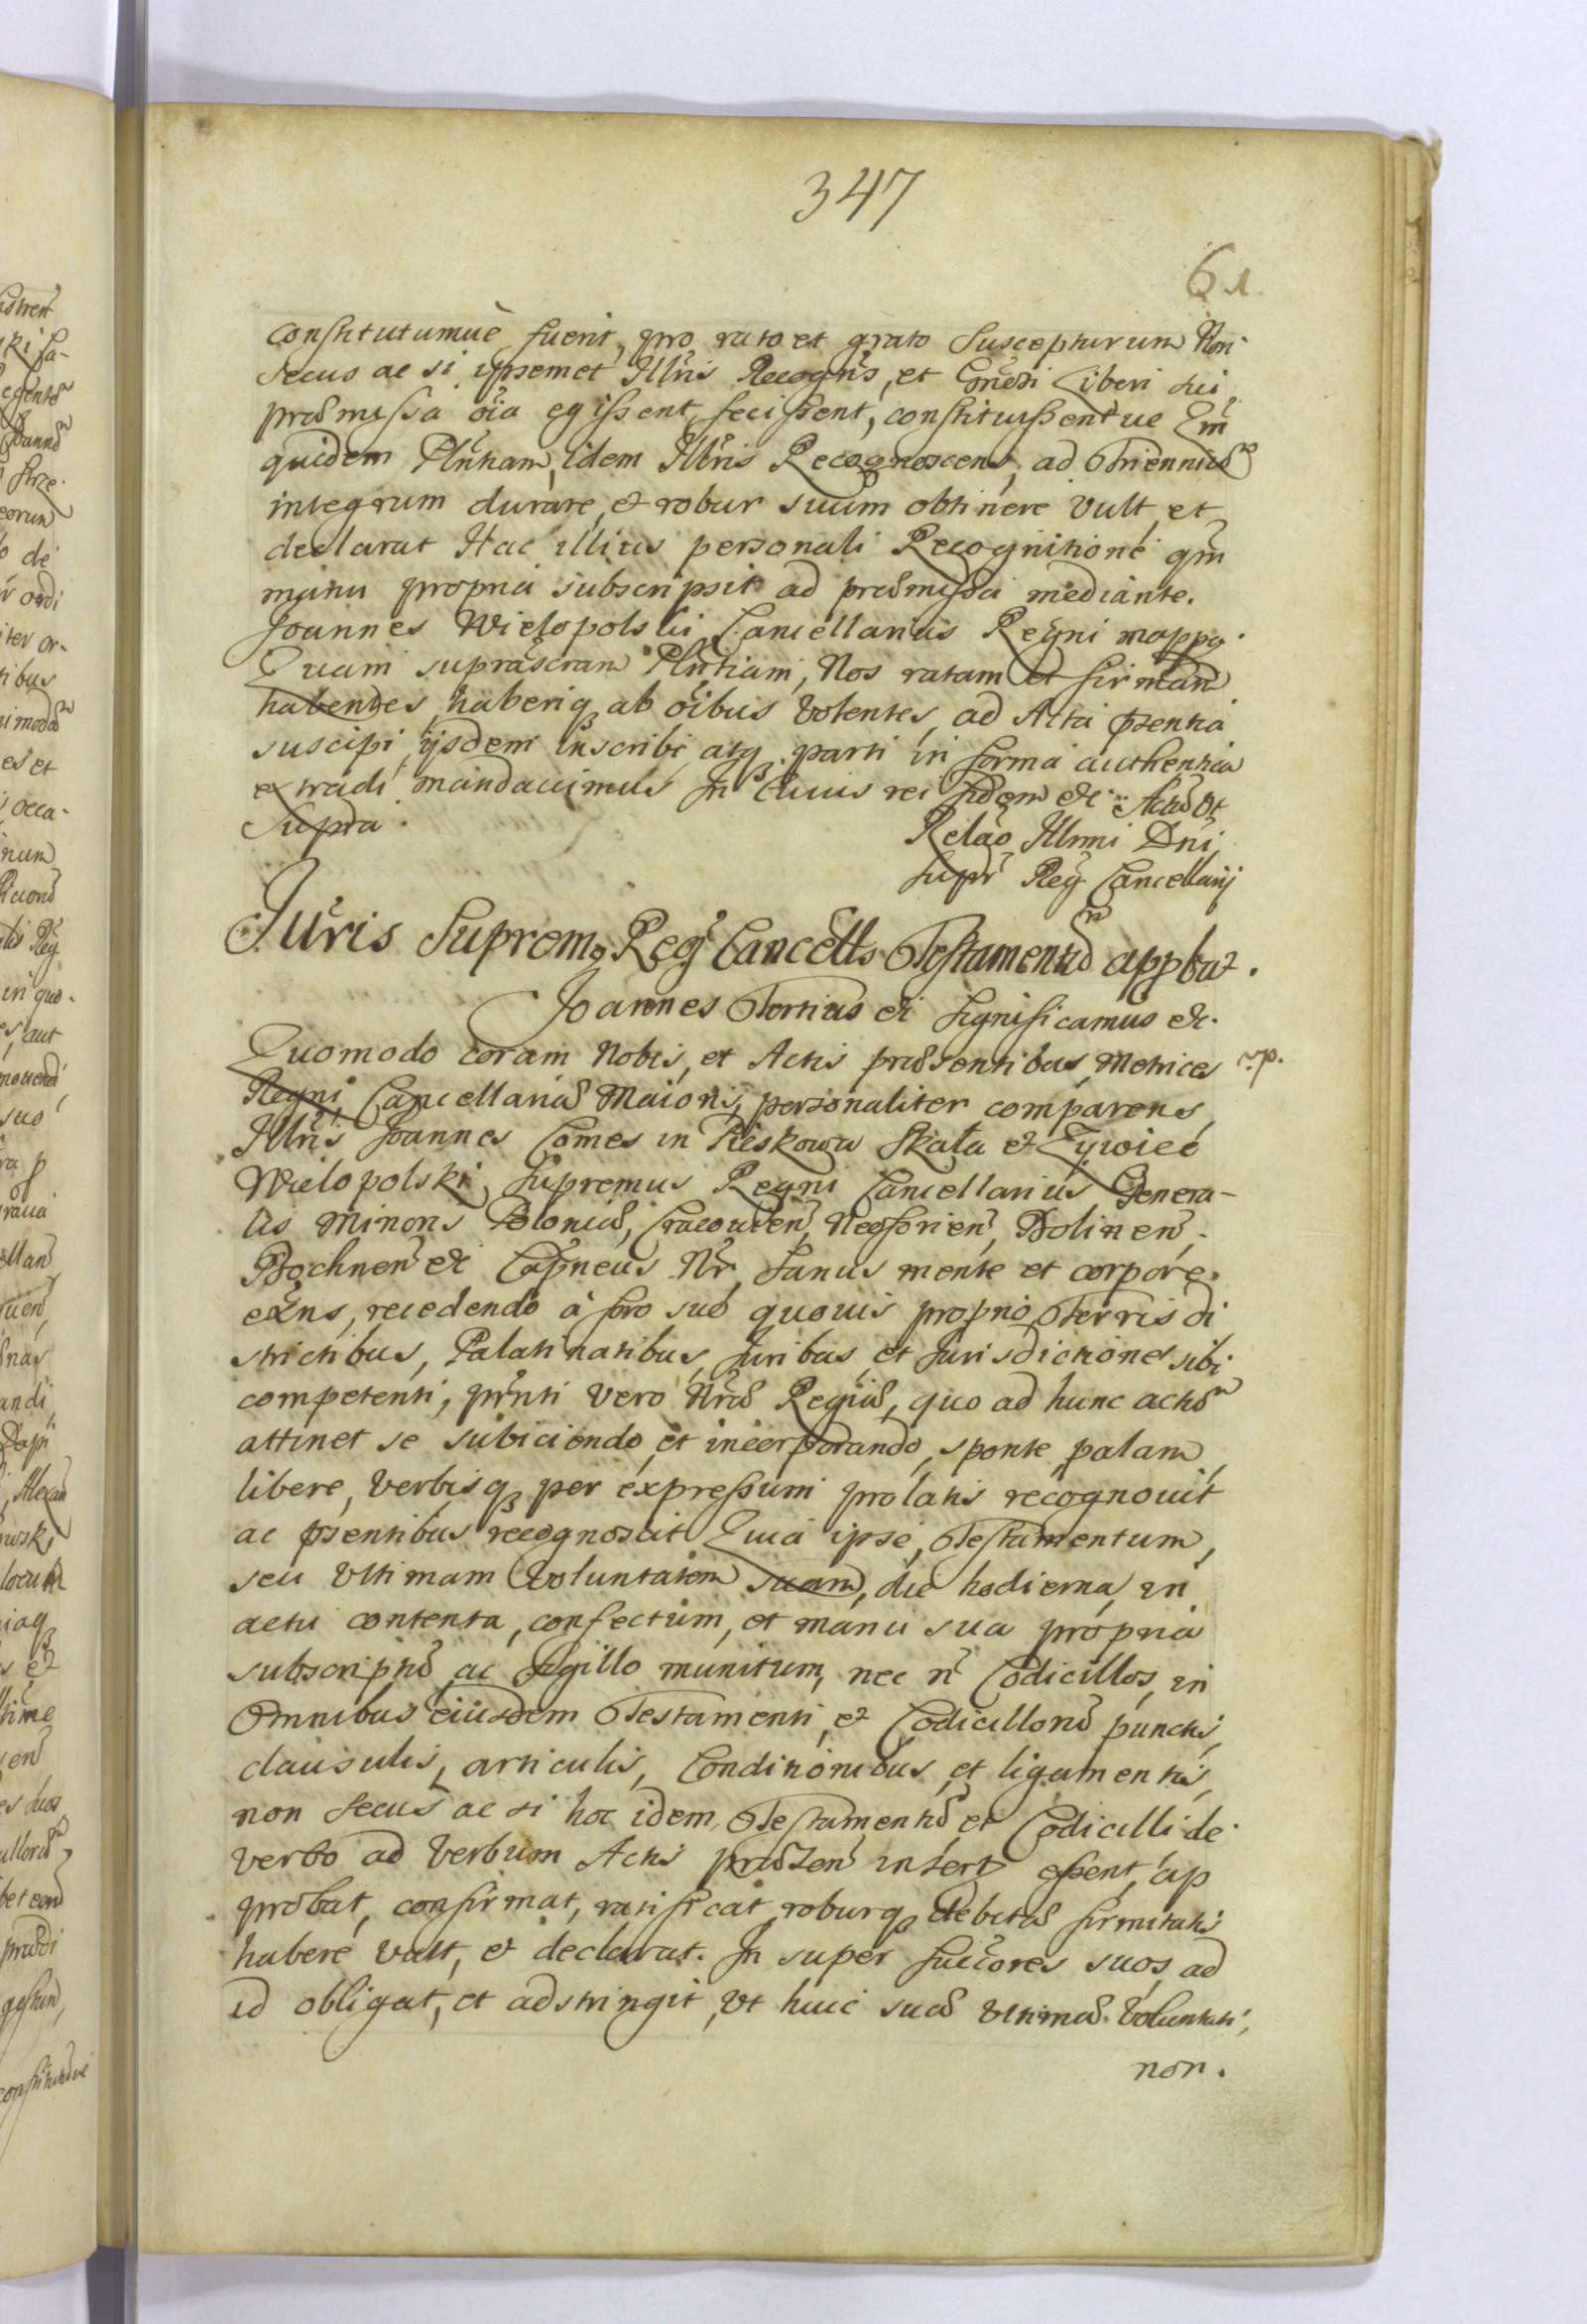 347
61.
constitutumuè fuerit, pro rato et grato suscepturum Non
secus ac si ipsemet Illris Recogns, et Gnesi Liberi sui
praemissa oia egissent, fecissent, constituissentue Qm
quidem Plntiam, idem Illris Recognoscens, ad Trienniu
integrum durare, et robur suum obtinere vult, et
declarat Hac illius personali Recognitione qm
manu propria subscripsit ad praemissa mediante.
Joannes Wielopolski Cancellarius Regni mappa.
Quam suprascram Plntiam, Nos ratam et firmam
habentes, haberiq ab oibus volentes, ad Acta psentia
suscipi, ijsdem inscribi atq parti in forma authentica
extradi mandauimus In Cuius rei fidem &c. Actu vt
Supra.
Relao Illmi Dni
supr Reg Cancellarij
Illris Supremi Reg Cancells Testamentu appbat.
Joannes Tertius &c Significamus &c.
Quomodo coram Nobis, et Actis praesentibus, Metrices
Regni Cancellariae Maioris, personaliter comparens
Illris Joannes Comes in Pieskowa Skała et Zywiec
Wielopolski, Supremus Regni Cancellarius Genera-
lis Minoris Poloniae, Cracouien, Neoforien, Dolinen,
Bochnen &c Capneus Nr, sanus mente et corpore
exns, recedendo à foro suo quouis proprio Terris di
strictibus, Palatinatibus, Juribus et Jurisdictiones sibi
competenti, prnti vero Nrae Regiae, quo ad hunc actu
attinet se subiciendo, et incorporando, sponte palam
libere, verbisq per expressum prolatis recognouit
ac psentibus recognoscit Quia ipse, Testamentum,
seu vltimam voluntatem suam, die hodierna, in
actu contenta, confectum, et manu sua propria
subscriptu, ac sigillo munitum, nec n Codicillos, in
Omnibus eiusdem Testamenti, et Codicilloru punctis,
clausulis, articulis, Conditionibus, et ligamentis,
non secus ac si hoc idem Testamentu, et Codicilli de
verbo ad verbum Actis praesen insert essent, ap
probat, confirmat, ratificat, roburq debitae firmitatis
habere vult, et declarat. In super succores suos ad
id obligat, et adstringit, vt huic suae vltimae voluntati,
non.